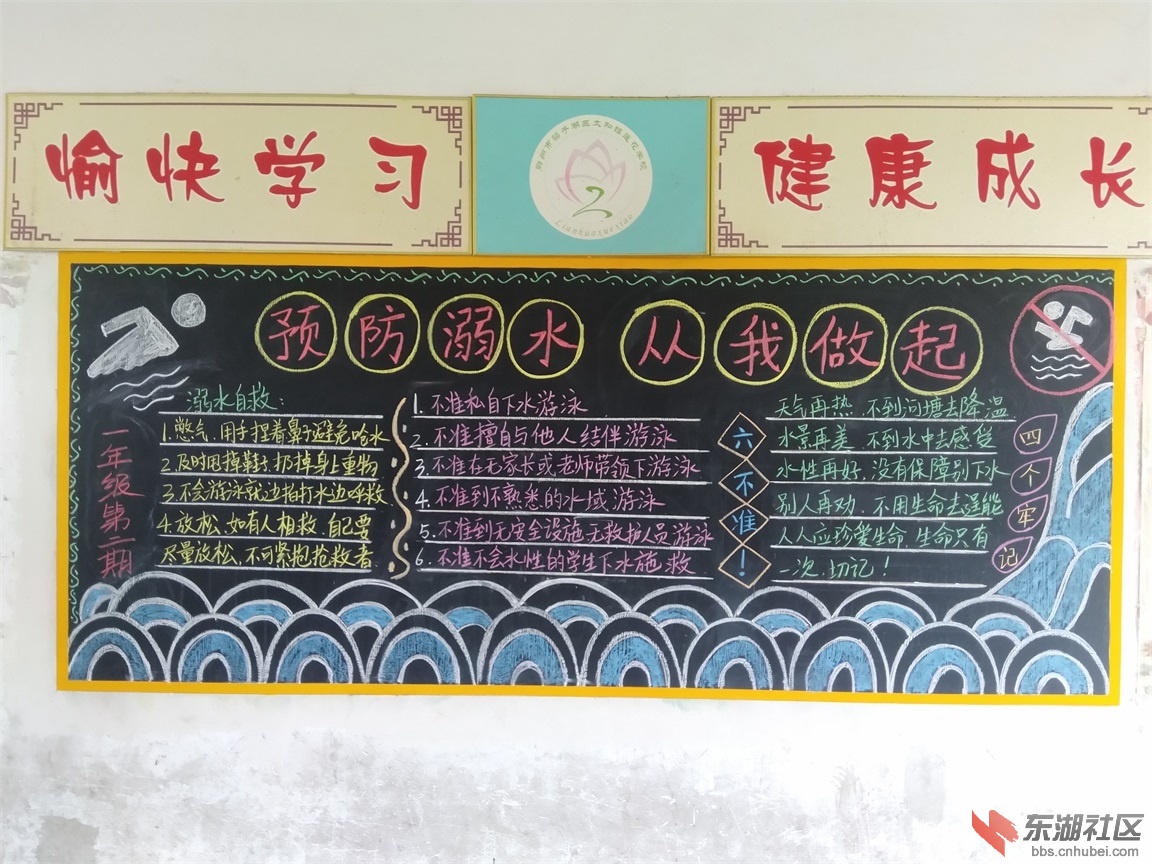 愉快学习
鄂州市梁子湖区太和镇莲花学校
2
Lianhuaxuexiao
健康成长
预防溺水 从我做起
一年级第二期
溺水自救:
1.憋气,用手捏着鼻子避免呛水
2.及时甩掉鞋子,扔掉身上重物
3.不会游泳就边拍打水边呼救
4.放松,如有人相救,自己要
尽量放松,不可紧抱抢救者
1.不准私自下水游泳
2.不准擅自与他人结伴游泳
3.不准在无家长或老师带领下游泳
4.不准到不熟悉的水域游泳
5.不准到无安全设施无救护人员游泳
6.不准不会水性的学生下水施救
六不准!
天气再热,不到河塘去降温
水景再美,不到水中去感受
水性再好,没有保障别下水
别人再劝,不用生命去逞能
人人应珍爱生命,生命只有
一次,切记!
四个牢记
东湖社区
bbs.cnhubei.com